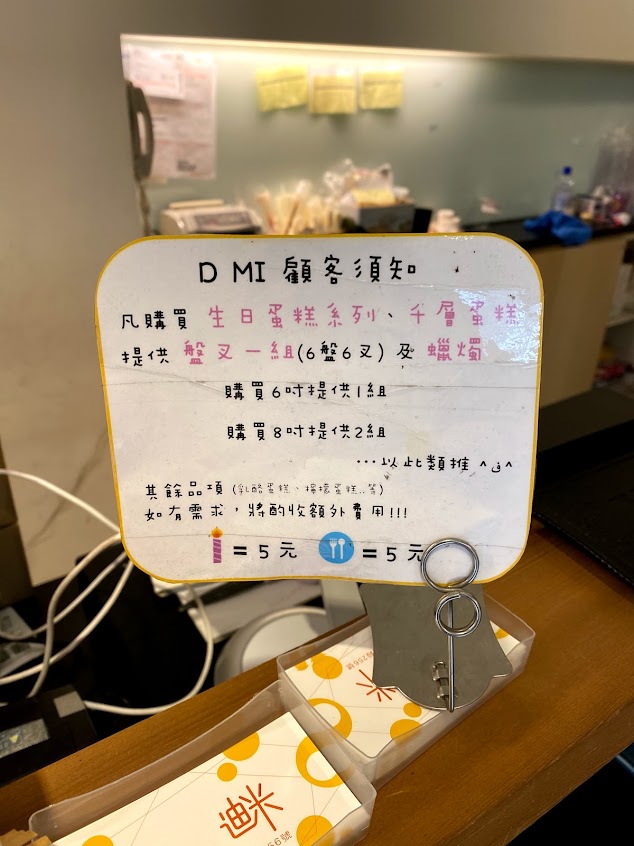 D MI 顧客須知
凡購買 生日蛋糕系列、千層蛋糕
提供 盤叉一組(6盤6叉) 及 蠟燭
購買6吋提供1組
購買8吋提供2組
...以此類推 ^_^
其餘品項 (乳酪蛋糕、檸檬蛋糕..等)
如有需求，將酌收額外費用!!!
= 5 元 = 5 元
256號
米
迪米
56號